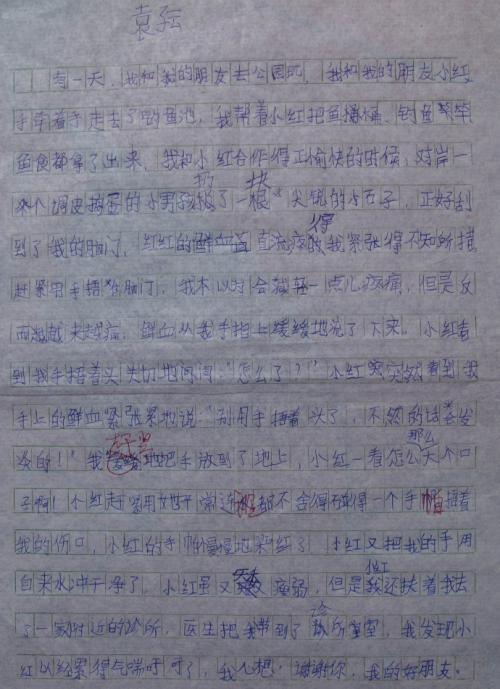 袁
有一天，我和我的朋友去公园玩，我和我的朋友小红，
手牵着手走去了钓鱼池，我帮着小红把鱼 桶、钓鱼竿
鱼食都拿了出来，我和小红合作得正愉快的时候，对岸一
扔 块
来个调皮捣蛋的小男孩 了一根尖锐的小石子，正好刮
得
到了我的脑门，红红的鲜血直流 我紧张得不知所措
赶紧用手捂住脑门，我本以为会减轻一点儿疼痛，但是反
而越越来越痛，鲜血从我手指上缓缓地流了下来。小红看
到我手捂着头关切地问问：“怎么了？”小红突突然看到我
手上的鲜血紧张紧地说：“别用手捂着头了，不然的话会发
那么
炎的！”我 地把手放到了地上，小红一看怎么大个口
子啊！小红赶紧用她平常连 都不舍得碰得一个手帕捂着
我的伤口，小红的手帕慢慢地染红了 小红又把我的手用
自来水冲干净了，小红虽又 瘦弱，但是我还扶着我去
诊
了一家附近的 所。医生把我带到了 所室室，我发现小
红以经累得气喘呼呼了，我心想：谢谢你，我的好朋友。